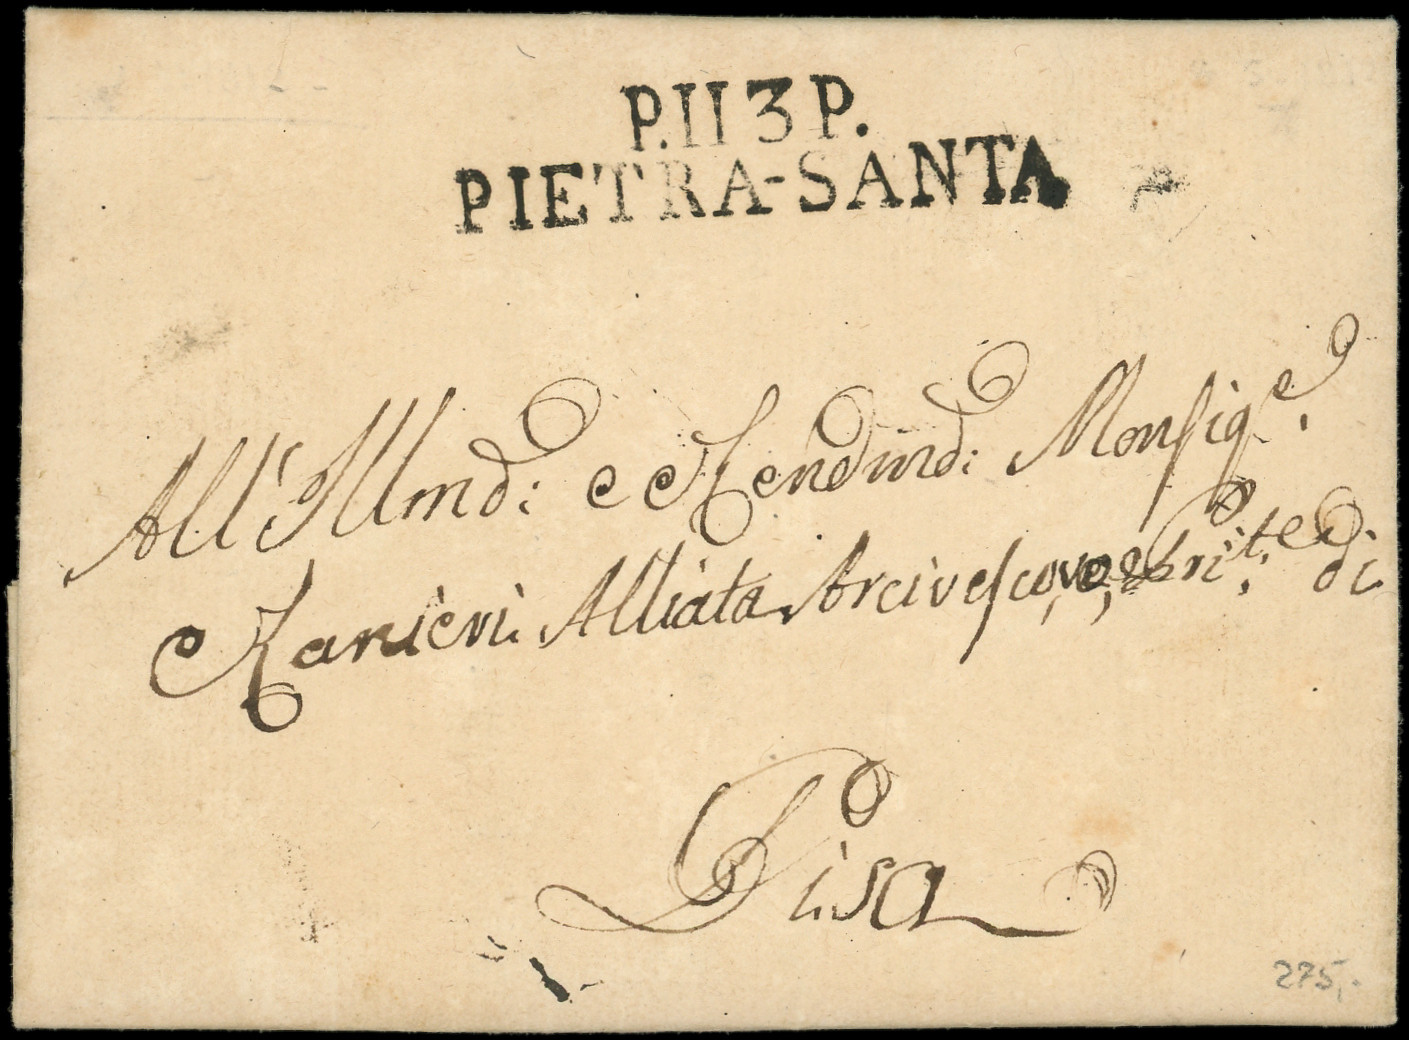 P.113P.
PIETRA-SANTA
All'Illmo: e Rendmo: Monsige.
Ranieri Alliata Arcivescovo, e Prite: di
Pisa
275,-